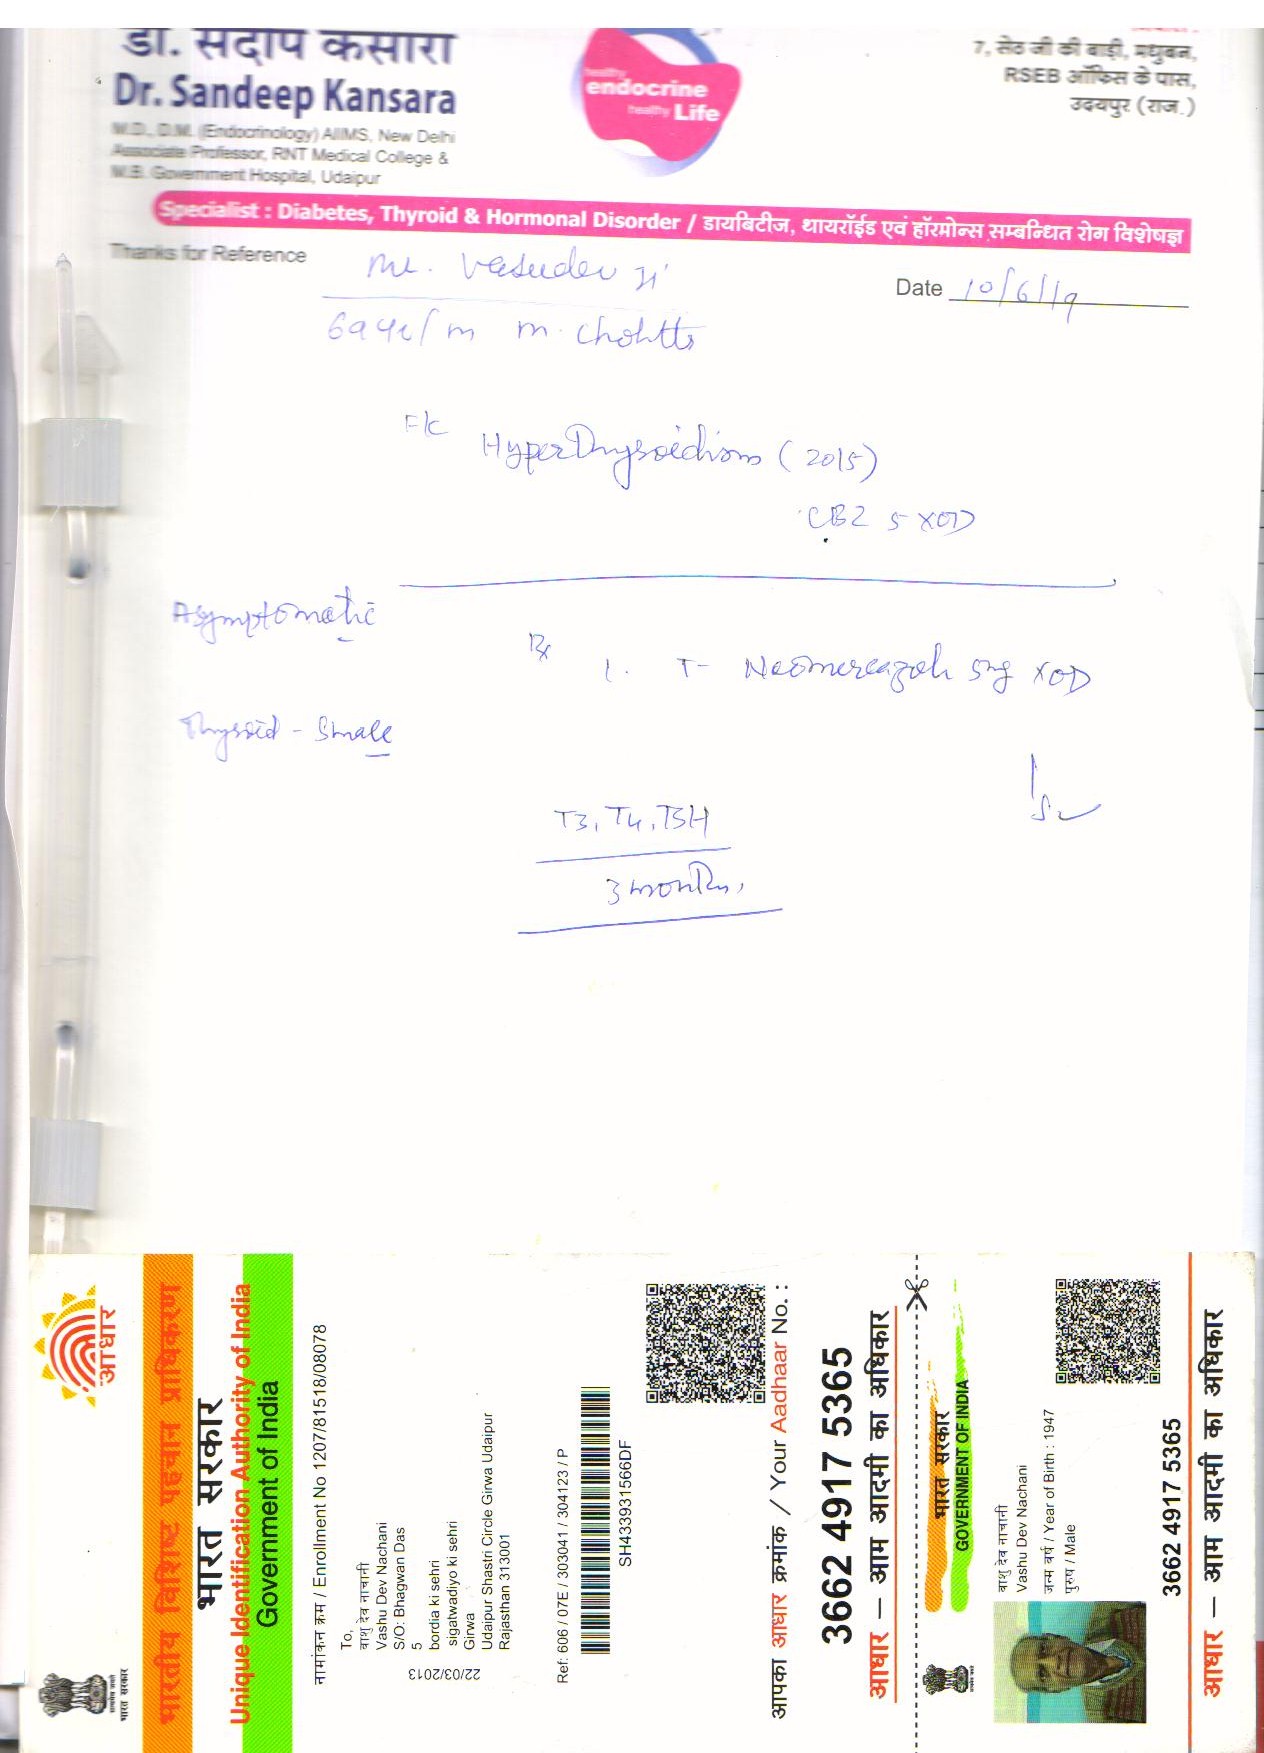 डॉ. संदीप कंसारा
Dr. Sandeep Kansara
M.D., D.M. (Endocrinology) AIIMS, New Delhi
Associate Professor, RNT Medical College &
M.B. Government Hospital, Udaipur
healthy
endocrine
healthy Life
7, सेठ जी की बाड़ी, मधुबन,
RSEB ऑफिस के पास,
उदयपुर (राज.)
Specialist : Diabetes, Thyroid & Hormonal Disorder / डायबिटीज, थायरॉईड एवं हॉरमोन्स सम्बन्धित रोग विशेषज्ञ
Thanks for Reference
Mr. Vasudev ji
Date 10/6/19
69 yr/m
F/c HyperThyroidism (2015)
CBZ 5 XOD
Asymptomatic
Rx 1. T- Neomercazole 5mg XOD
Thyroid - Small
T3, T4, TSH
3 months
आधार
भारतीय विशिष्ट पहचान प्राधिकरण
भारत सरकार
Unique Identification Authority of India
Government of India
भारत सरकार
नामांकन क्रम / Enrollment No 1207/81518/08078
To,
वाशु देव नाचानी
Vashu Dev Nachani
S/O: Bhagwan Das
5
bordia ki sehri
sigatwadiyo ki sehri
Girwa
Udaipur Shastri Circle Girwa Udaipur
Rajasthan 313001
22/03/2013
Ref: 606 / 07E / 303041 / 304123 / P
SH433931566DF
आपका आधार क्रमांक / Your Aadhaar No. :
3662 4917 5365
आधार — आम आदमी का अधिकार
भारत सरकार
GOVERNMENT OF INDIA
वाशु देव नाचानी
Vashu Dev Nachani
जन्म वर्ष / Year of Birth : 1947
पुरुष / Male
3662 4917 5365
आधार — आम आदमी का अधिकार